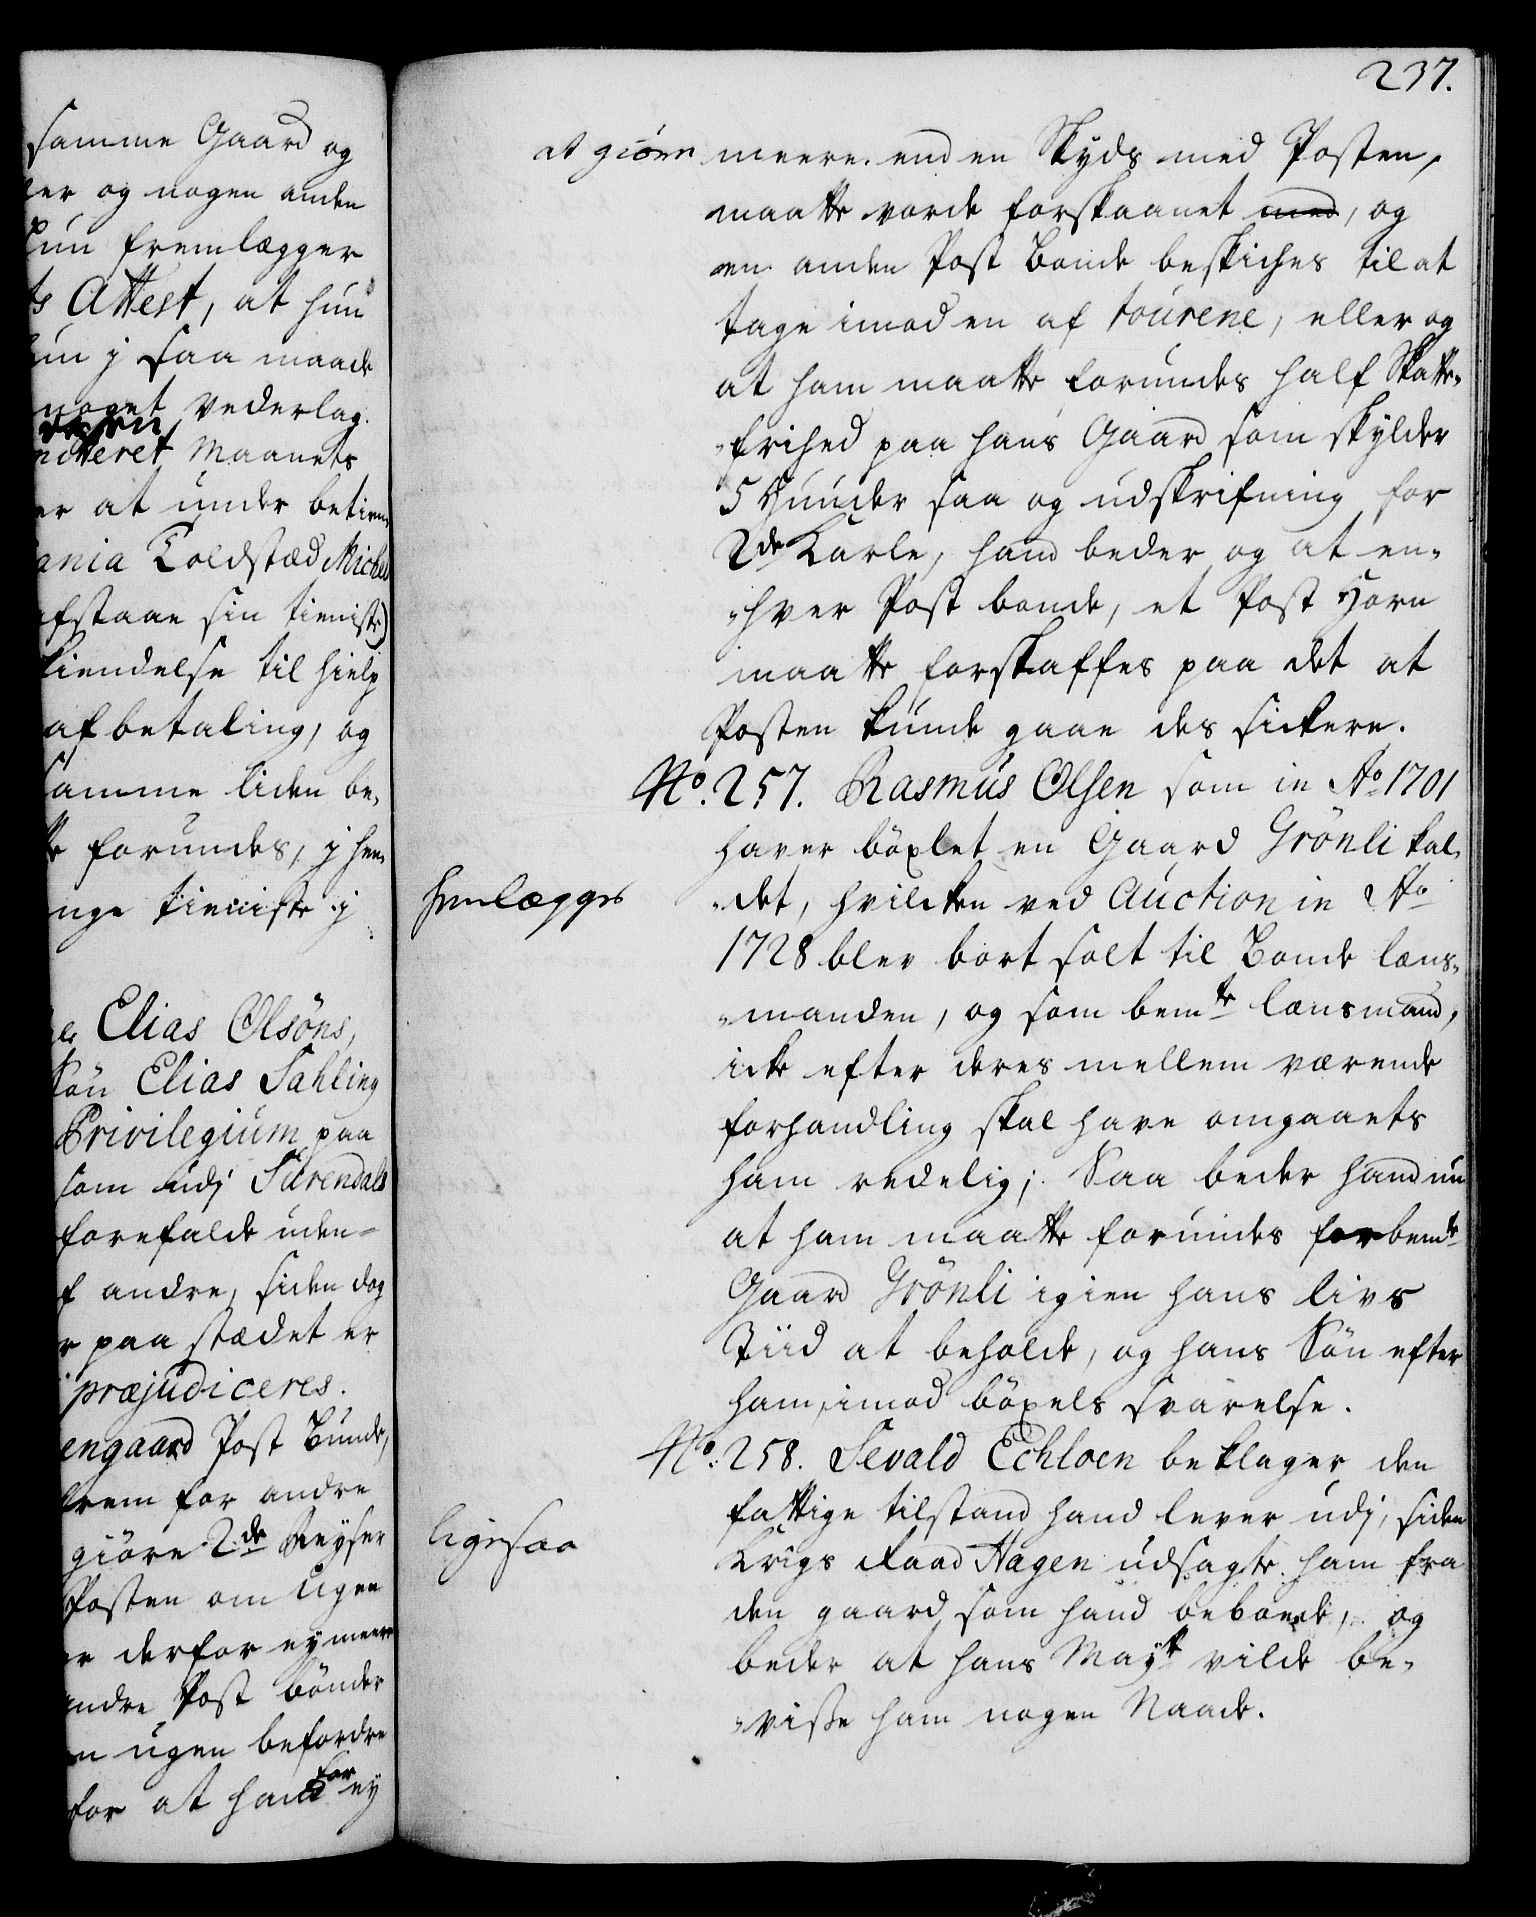 samme Gaard og
er og nogen anden
hun fremlægger
ts Attest, at hun
hun j saa maade
noget vederlag.
Maanets
er at under betien
ania Toldstæd Michel
afstaae sin tieniste
kiendelse til hielp
af betaling, og
samme liden be,
forundes, j hen,
nge tieniste j
Elias Olsöns,
Sön Elias Sahling
Privilegium paa
som udj Surendals
forefalde uden=
f andre, siden dog
r paa stædet er
præjudiceres.
engaard Post Bunde,
frem for andre
giöre 2de Reyser
Posten om Ugen
er derfor ey meere
andre Post bönder
en ugen befordre
for
for at hand ey
237.
at giöre meere end en Skyds med Posten,
maatte vorde forskaanet med, og
en anden Post Bonde beskickes til at
tage imod en af tourene, eller og
at ham maatte forundes half Skatte,
,frihed paa hans Gaard som skylder
5 Hunder saa og udskrifning for
2de Karle, hand beder og at en,
,hver Post bonde, et Post Horn
maatte forskaffes paa det at
Posten kunde gaae des sickere.
No. 257. Rasmus Olsen som in Ao 1701
haver böxlet en Gaard Grönli kal,
henlægges
,det, hvilcken ved Auction in Ao
1728 blev bort solt til Bonde læns,
,manden, og som bemte lænsmand,
icke efter deres mellem værende
forhandling skal have omgaaets
ham redelig; Saa beder hand nu
at ham maatte forundes forbemte
Gaard Grönli igien hans livs
Tiid at beholde, og hans Sön efter
ham, imod böxels svarelse.
No. 258. Sevald Echloen beklager den
fattige tilstand hand lever udj, siden
ligesaa
Krigs Raad Hagen udsagte ham fra
den gaard som hand beboede, og
beder at hans Mayt vilde be,
,viße ham nogen Naade.